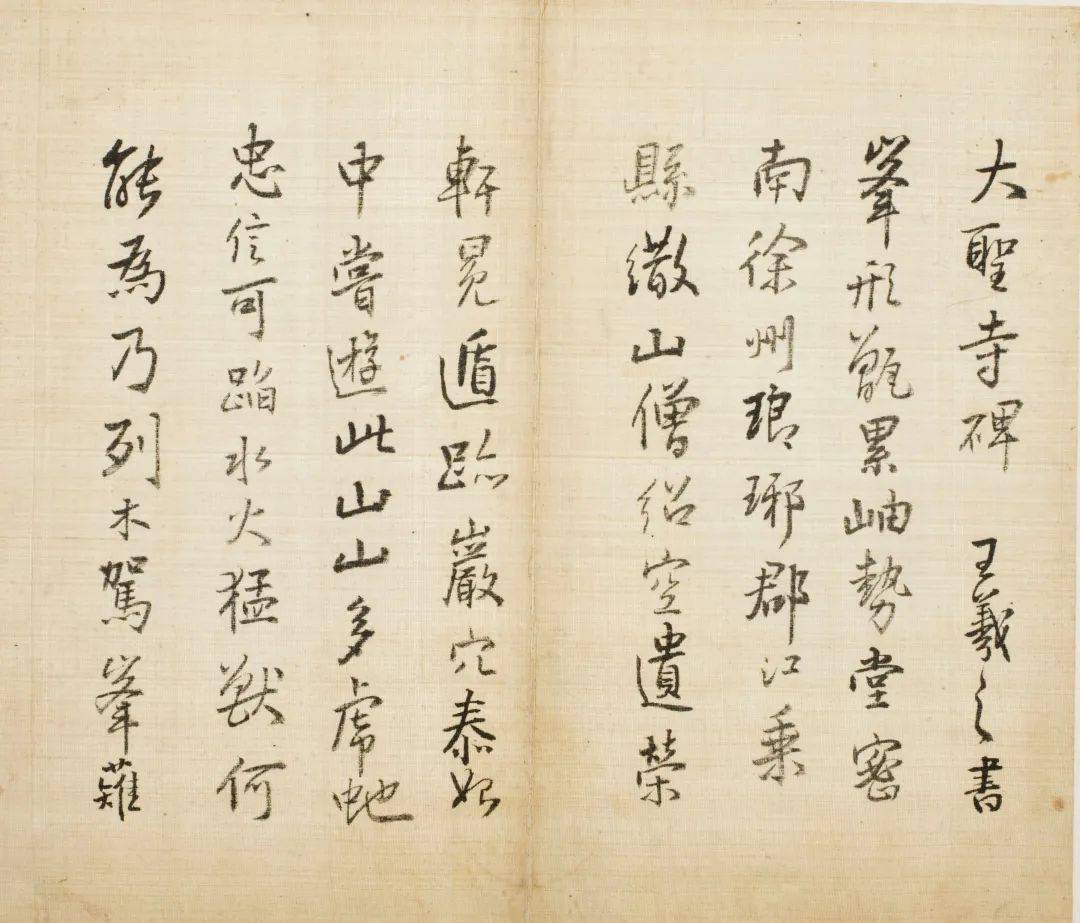 大聖寺碑 王羲之書
峯形甑累岫勢堂密
南徐州琅瑘郡江乗
縣繖山僧紹空遺榮
軒冕遁跡巖穴泰始
中嘗遊此山山多虎虵
忠信可蹈水火猛獸何
能為乃列木駕峯薙